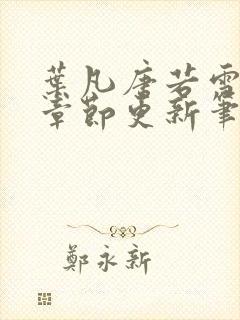 葉凡唐若雪
章節更新筆
鄭永新